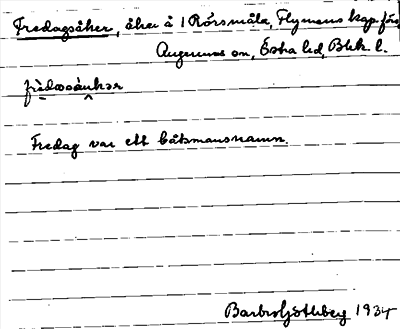 Fredagsåker, åker å 1 Rörsmåla, Flymens kap. förs.
Augerums sn, Östra hd, Blek. l.
Fredag var ett båtsmansnamn.
Barbro Götlberg 1934